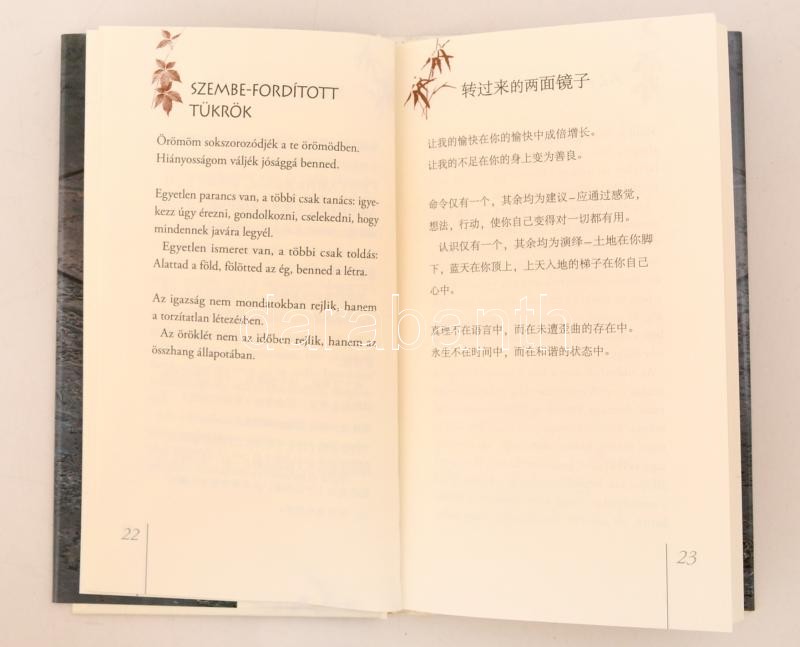 SZEMBE-FORDÍTOTT
TÜKRÖK
Örömöm sokszorozódjék a te örömödben.
Hiányosságom váljék jósággá benned.
Egyetlen parancs van, a többi csak tanács: igye-
kezz úgy érezni, gondolkozni, cselekedni, hogy
mindennek javára legyél.
Egyetlen ismeret van, a többi csak toldás:
Alattad a föld, fölötted az ég, benned a létra.
Az igazság nem mondatokban rejlik, hanem
a torzítatlan létezésben.
Az öröklét nem az időben rejlik, hanem az
összhang állapotában.
22
转过来的两面镜子
让我的愉快在你的愉快中成倍增长。
让我的不足在你的身上变为善良。
命令仅有一个，其余均为建议–应通过感觉，
想法，行动，使你自己变得对一切都有用。
认识仅有一个，其余均为演绎–土地在你脚
下，蓝天在你顶上，上天入地的梯子在你自己
心中。
真理不在语言中，而在未遭歪曲的存在中。
永生不在时间中，而在和谐的状态中。
23
darabanth